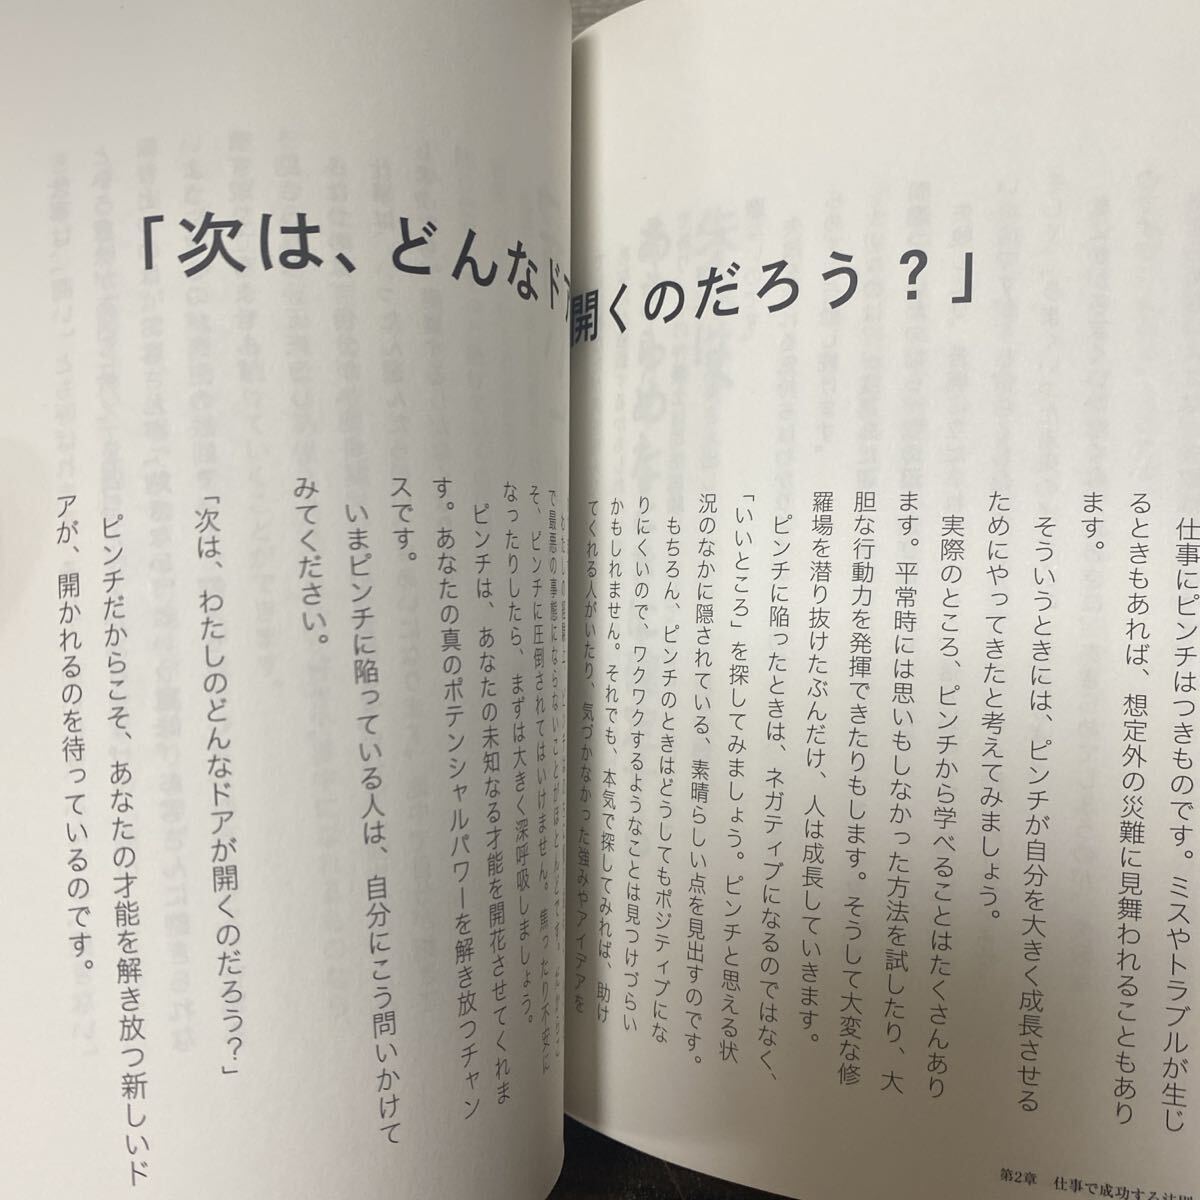 「次は、どんなドア
開くのだろう？」
仕事にピンチはつきものです。ミスやトラブルが生じ
るときもあれば、想定外の災難に見舞われることもあり
ます。
そういうときには、ピンチが自分を大きく成長させる
ためにやってきたと考えてみましょう。
実際のところ、ピンチから学べることはたくさんあり
ます。平常時には思いもしなかった方法を試したり、大
胆な行動力を発揮できたりもします。そうして大変な修
羅場を潜り抜けたぶんだけ、人は成長していきます。
ピンチに陥ったときは、ネガティブになるのではなく、
「いいところ」を探してみましょう。ピンチと思える状
況のなかに隠されている、素晴らしい点を見出すのです。
もちろん、ピンチのときはどうしてもポジティブにな
りにくいので、ワクワクするようなことは見つけづらい
かもしれません。それでも、本気で探してみれば、助け
てくれる人がいたり、気づかなかった強みやアイデアを
で最悪の事態にならないことがほとんどです。だからこ
そ、ピンチに圧倒されてはいけません。焦ったり不安に
なったりしたら、まずは大きく深呼吸しましょう。
ピンチは、あなたの未知なる才能を開花させてくれま
す。あなたの真のポテンシャルパワーを解き放つチャン
スです。
いまピンチに陥っている人は、自分にこう問いかけて
みてください。
「次は、わたしのどんなドアが開くのだろう？」
ピンチだからこそ、あなたの才能を解き放つ新しいド
アが、開かれるのを待っているのです。
第2章　仕事で成功する法則